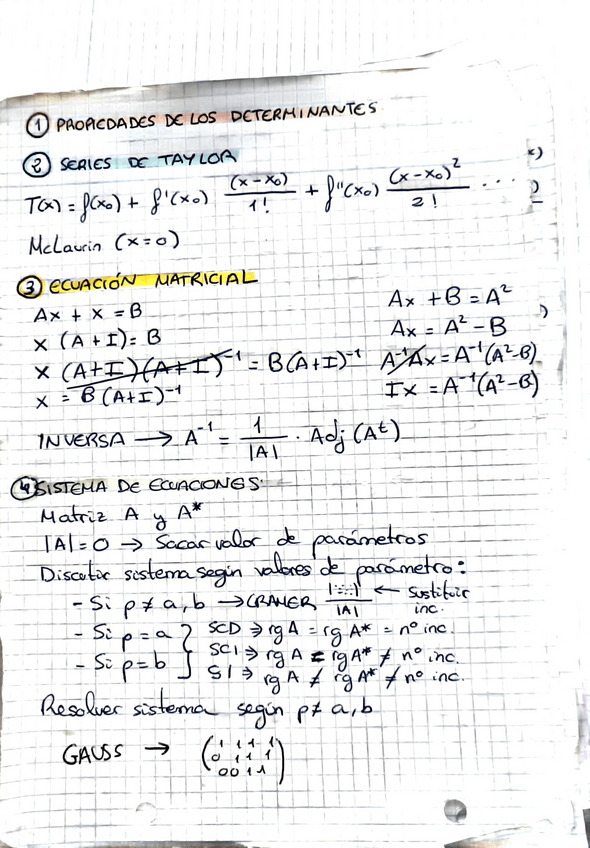 ① PROPIEDADES DE LOS DETERMINANTES
② SERIES DE TAYLOR
T(x) = f(x₀) + f'(x₀) (x-x₀)/1! + f''(x₀) (x-x₀)²/2! ...
McLaurin (x=0)
③ ECUACIÓN MATRICIAL
Ax + x = B
x (A+I) = B
x (A+I)(A+I)⁻¹ = B(A+I)⁻¹
x = B(A+I)⁻¹
Ax + B = A²
Ax = A² - B
A⁻¹Ax = A⁻¹(A²-B)
Ix = A⁻¹(A²-B)
INVERSA → A⁻¹ = 1/|A| · Adj(Aᵗ)
④ SISTEMA DE ECUACIONES
Matriz A y A*
|A| = 0 → Sacar valor de parámetros
Discutir sistema según valores de parámetro:
- Si p ≠ a, b → CRAMER |:::|/|A| ← sustituir inc.
- Si p = a
- Si p = b
SCD ⇒ rg A = rg A* = nº inc.
SCI ⇒ rg A = rg A* ≠ nº inc.
SI ⇒ rg A ≠ rg A* ≠ nº inc.
Resolver sistema según p ≠ a, b
GAUSS → (1 1 1 1
0 1 1 1
0 0 1 1)